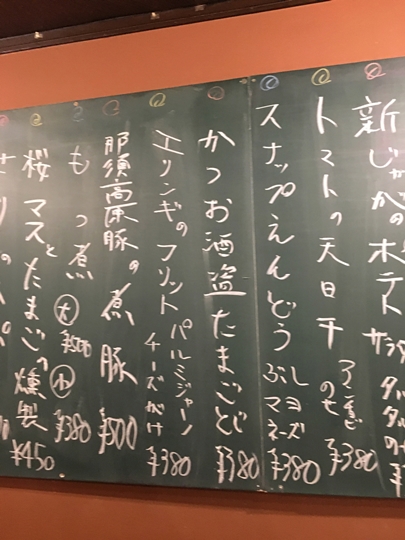 新じゃがのポテトサラダ
トマトの天日干
のせ ¥380
スナップえんどう
ぶしマヨネーズ ¥380
かつお酒盗たまごとじ ¥380
エリンギのフリット
パルミジャーノ
チーズがけ ¥380
那須高原豚の煮豚 ¥500
もつ煮 大 ¥500 小 ¥380
桜マスとたまごの燻製 ¥450